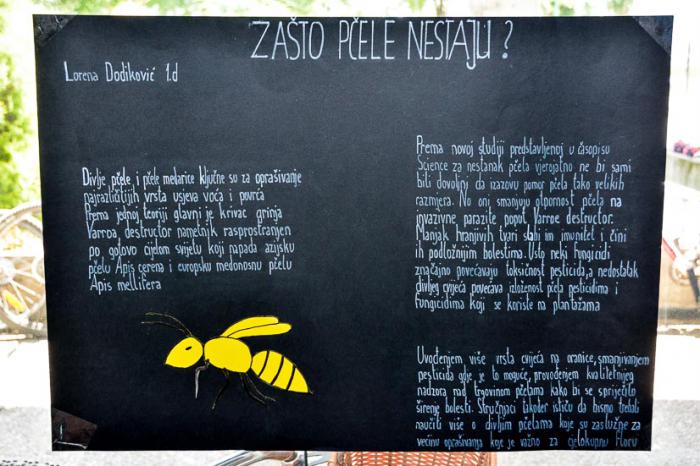 ZAŠTO PČELE NESTAJU?
Lorena Dodiković 1.d
Divlje pčele i pčele melarice ključne su za oprašivanje
najrazličitijih vrsta usjeva voća i povrća
Prema jednoj teoriji glavni je krivac grinja
Varroa destructor nametnik rasprostranjen
po gotovo cijelom svijetu koji napada azijsku
pčelu Apis cerena i europsku medonosnu pčelu
Apis mellifera
Prema novoj studiji predstavljenoj u časopisu
Science za nestanak pčela vjerojatno ne bi sami
bili dovoljni da izazovu pomor pčela tako velikih
razmjera. No oni smanjuju otpornost pčela na
invazivne parazite poput Varroe destructor.
Manjak hranjivih tvari slabi im imunitet i čini
ih podložnijim bolestima. Usto neki fungicidi
značajno povećavaju toksičnost pesticida, a nedostatak
divljeg cvijeća povećava izloženost pčela pesticidima i
fungicidima koji se koriste na plantažama
Uvođenjem više vrsta cvijeća na oranice, smanjivanjem
pesticida gdje je to moguće, provođenjem kvalitetnijeg
nadzora nad trgovinom pčelama kako bi se spriječilo
širenje bolesti. Stručnjaci također ističu da bismo trebali
naučiti više o divljim pčelama koje su zaslužne za
većinu oprašivanja koje je važno za cjelokupnu floru